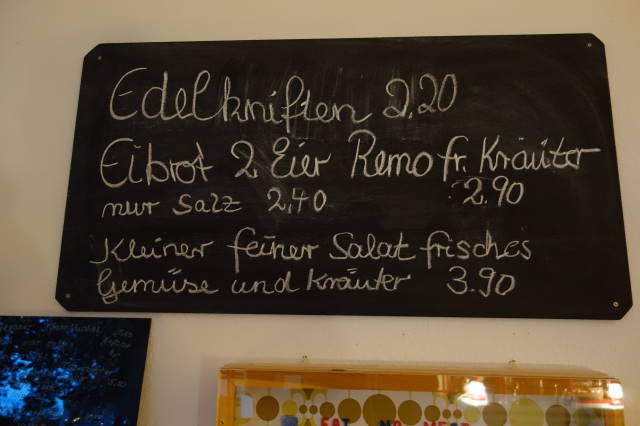 Edelkniften 2.20
Eibrot 2 Eier Remo fr. Kräuter
nur Salz 2,40 2.90
Kleiner feiner Salat frisches
Gemüse und Kräuter 3.90
EAT NO MEAT